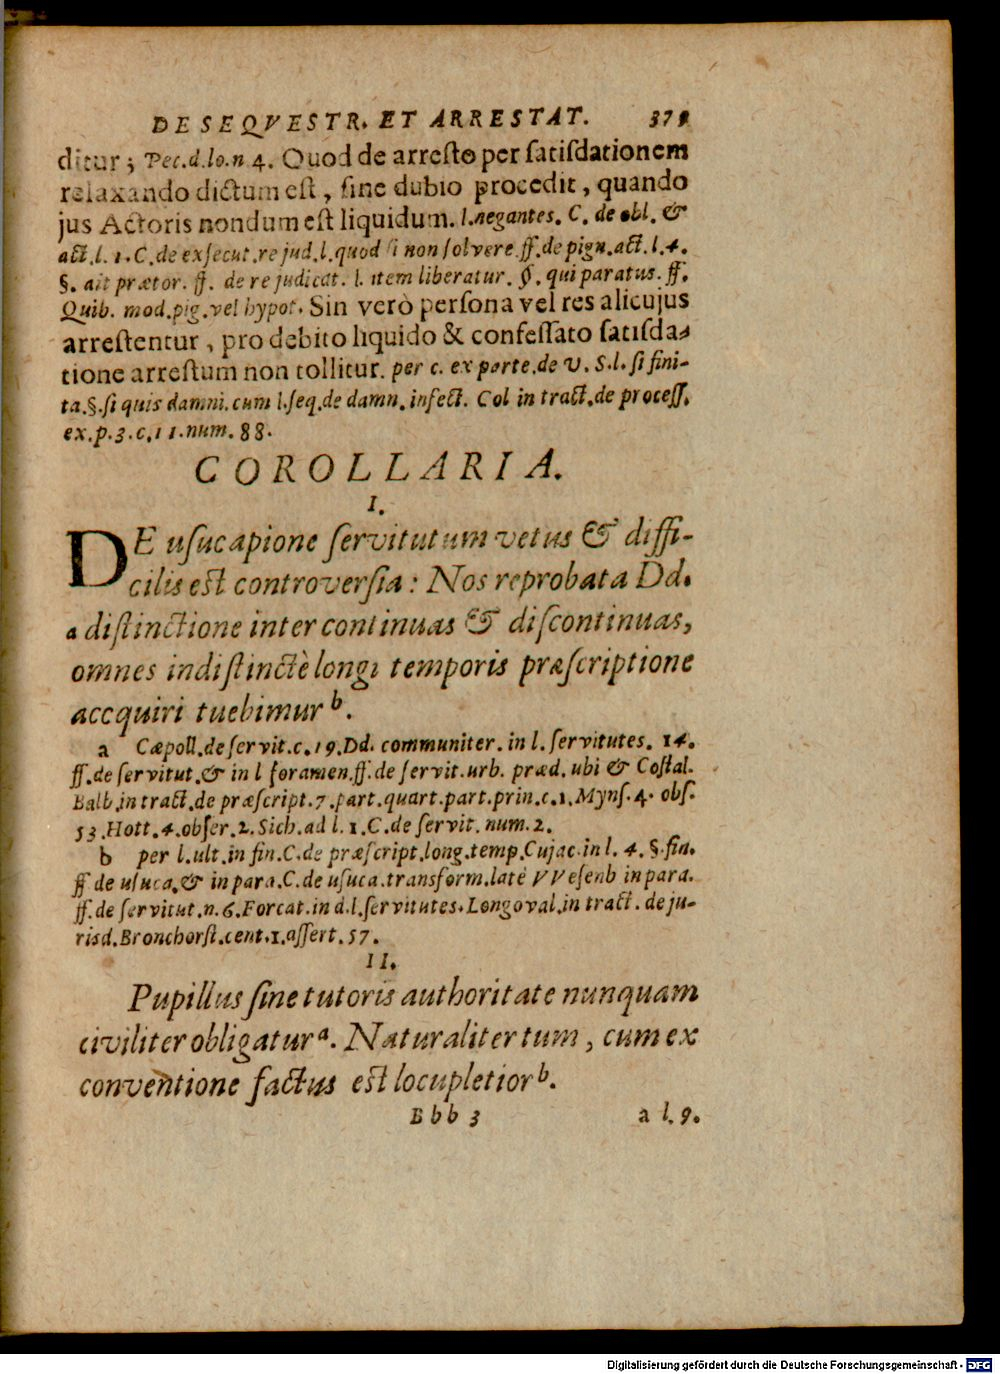 DE SEQVESTR. ET ARRESTAT. 379
ditur; Pec.d.lo.n 4. Quod de arresto per satisdationem
relaxando dictum est, sine dubio procedit, quando
jus Actoris nondum est liquidum. l.negantes. C. de obl. &
act.l. 1. C. de exsecut.rejud.l.quod si non solvere.ff.de pign.act.l.4.
§. ait prætor. ff. de rejudicat. l. item liberatur. §. qui paratus. ff.
Quib. mod.pig.vel hypot. Sin verò persona vel res alicujus
arrestentur, pro debito liquido & confessato satisda-
tione arrestum non tollitur. per c. ex parte.de V. S.l. si fini-
ta.§.si quis damni.cum l.seq.de damn.infect. Col in tract.de process.
ex.p.3.c.11.num. 88.
COROLLARIA.
I.
DE usucapione servitutum vetus & diffi-
cilis est controversia: Nos reprobata Dd.
a distinctione inter continuas & discontinuas,
omnes indistinctè longi temporis præscriptione
accquiri tuebimur b.
a Cæpoll.de servit.c.19.Dd. communiter. in l. servitutes. 14.
ff.de servitut.& in l foramen.ff.de servit.urb. præd. ubi & Costal.
Balb.in tract.de præscript.7.part.quart.part.prin.c.1.Myns.4. obs.
53.Hott.4.obser.2.Sich.ad l. 1.C.de servit.num.2.
b per l.ult.in fin.C.de præscript.long.temp.Cujac.in l. 4. §.fin.
ff de usuca.& in para.C.de usuca.transform.latè VVesenb in para.
ff.de servitut.n.6.Forcat.in d.l.servitutes.Longoval.in tract. de ju-
risd.Bronchorst.cent.1.assert.57.
II.
Pupillus sine tutoris authoritate nunquam
civiliter obligatur a. Naturaliter tum, cum ex
conventione factus est locupletior b.
Bbb 3 a l. 9.
Digitalisierung gefördert durch die Deutsche Forschungsgemeinschaft - DFG